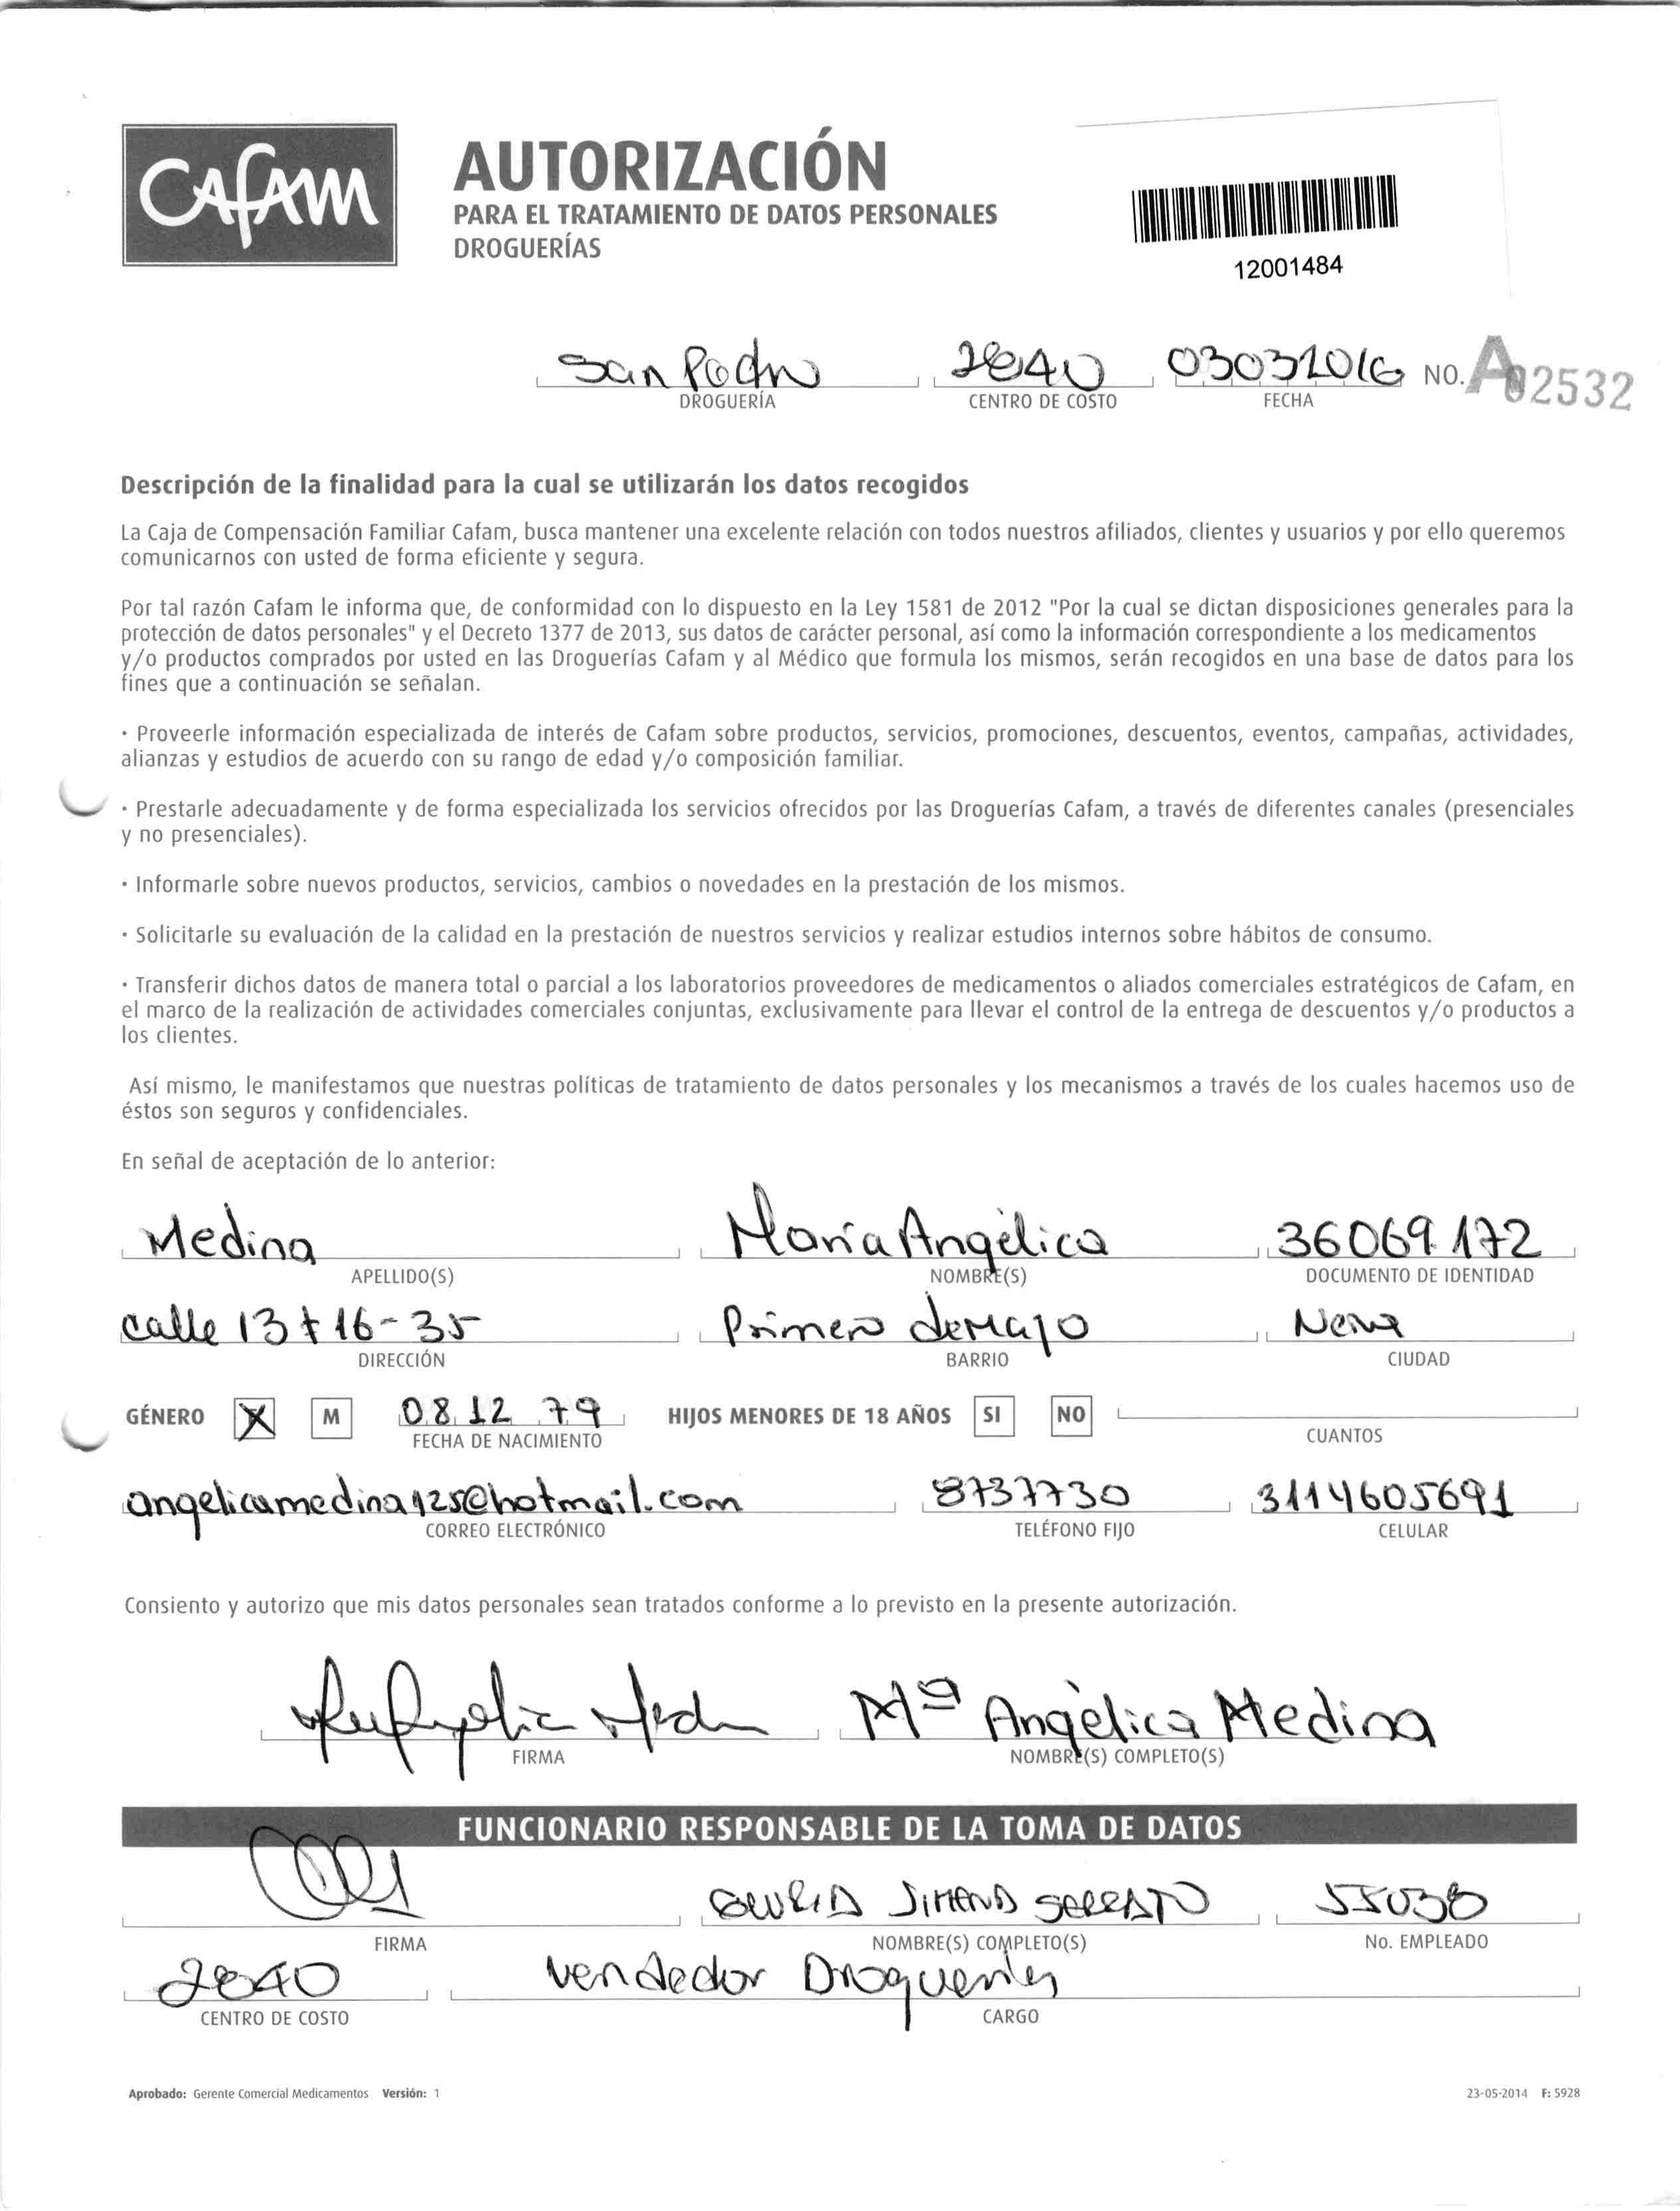 Cafam
AUTORIZACIÓN
PARA EL TRATAMIENTO DE DATOS PERSONALES
DROGUERÍAS
12001484
San Pedro 2840 03032016 NO. A02532
DROGUERÍA CENTRO DE COSTO FECHA
Descripción de la finalidad para la cual se utilizarán los datos recogidos
La Caja de Compensación Familiar Cafam, busca mantener una excelente relación con todos nuestros afiliados, clientes y usuarios y por ello queremos
comunicarnos con usted de forma eficiente y segura.
Por tal razón Cafam le informa que, de conformidad con lo dispuesto en la Ley 1581 de 2012 "Por la cual se dictan disposiciones generales para la
protección de datos personales" y el Decreto 1377 de 2013, sus datos de carácter personal, así como la información correspondiente a los medicamentos
y/o productos comprados por usted en las Droguerías Cafam y al Médico que formula los mismos, serán recogidos en una base de datos para los
fines que a continuación se señalan.
· Proveerle información especializada de interés de Cafam sobre productos, servicios, promociones, descuentos, eventos, campañas, actividades,
alianzas y estudios de acuerdo con su rango de edad y/o composición familiar.
· Prestarle adecuadamente y de forma especializada los servicios ofrecidos por las Droguerías Cafam, a través de diferentes canales (presenciales
y no presenciales).
· Informarle sobre nuevos productos, servicios, cambios o novedades en la prestación de los mismos.
· Solicitarle su evaluación de la calidad en la prestación de nuestros servicios y realizar estudios internos sobre hábitos de consumo.
· Transferir dichos datos de manera total o parcial a los laboratorios proveedores de medicamentos o aliados comerciales estratégicos de Cafam, en
el marco de la realización de actividades comerciales conjuntas, exclusivamente para llevar el control de la entrega de descuentos y/o productos a
los clientes.
Así mismo, le manifestamos que nuestras políticas de tratamiento de datos personales y los mecanismos a través de los cuales hacemos uso de
éstos son seguros y confidenciales.
En señal de aceptación de lo anterior:
Medina María Angélica 36069172
APELLIDO(S) NOMBRE(S) DOCUMENTO DE IDENTIDAD
calle 13 # 16-35 Primero de Mayo Neiva
DIRECCIÓN BARRIO CIUDAD
GÉNERO X M 08 12 79 HIJOS MENORES DE 18 AÑOS SI NO
FECHA DE NACIMIENTO CUANTOS
angelicamedina125@hotmail.com 8737730 3114605691
CORREO ELECTRÓNICO TELÉFONO FIJO CELULAR
Consiento y autorizo que mis datos personales sean tratados conforme a lo previsto en la presente autorización.
Mª Angélica Medina
FIRMA NOMBRE(S) COMPLETO(S)
FUNCIONARIO RESPONSABLE DE LA TOMA DE DATOS
Jimena 55038
FIRMA NOMBRE(S) COMPLETO(S) No. EMPLEADO
2840 Vendedor Droguerías
CENTRO DE COSTO CARGO
Aprobado: Gerente Comercial Medicamentos Versión: 1 23-05-2014 F: 5928